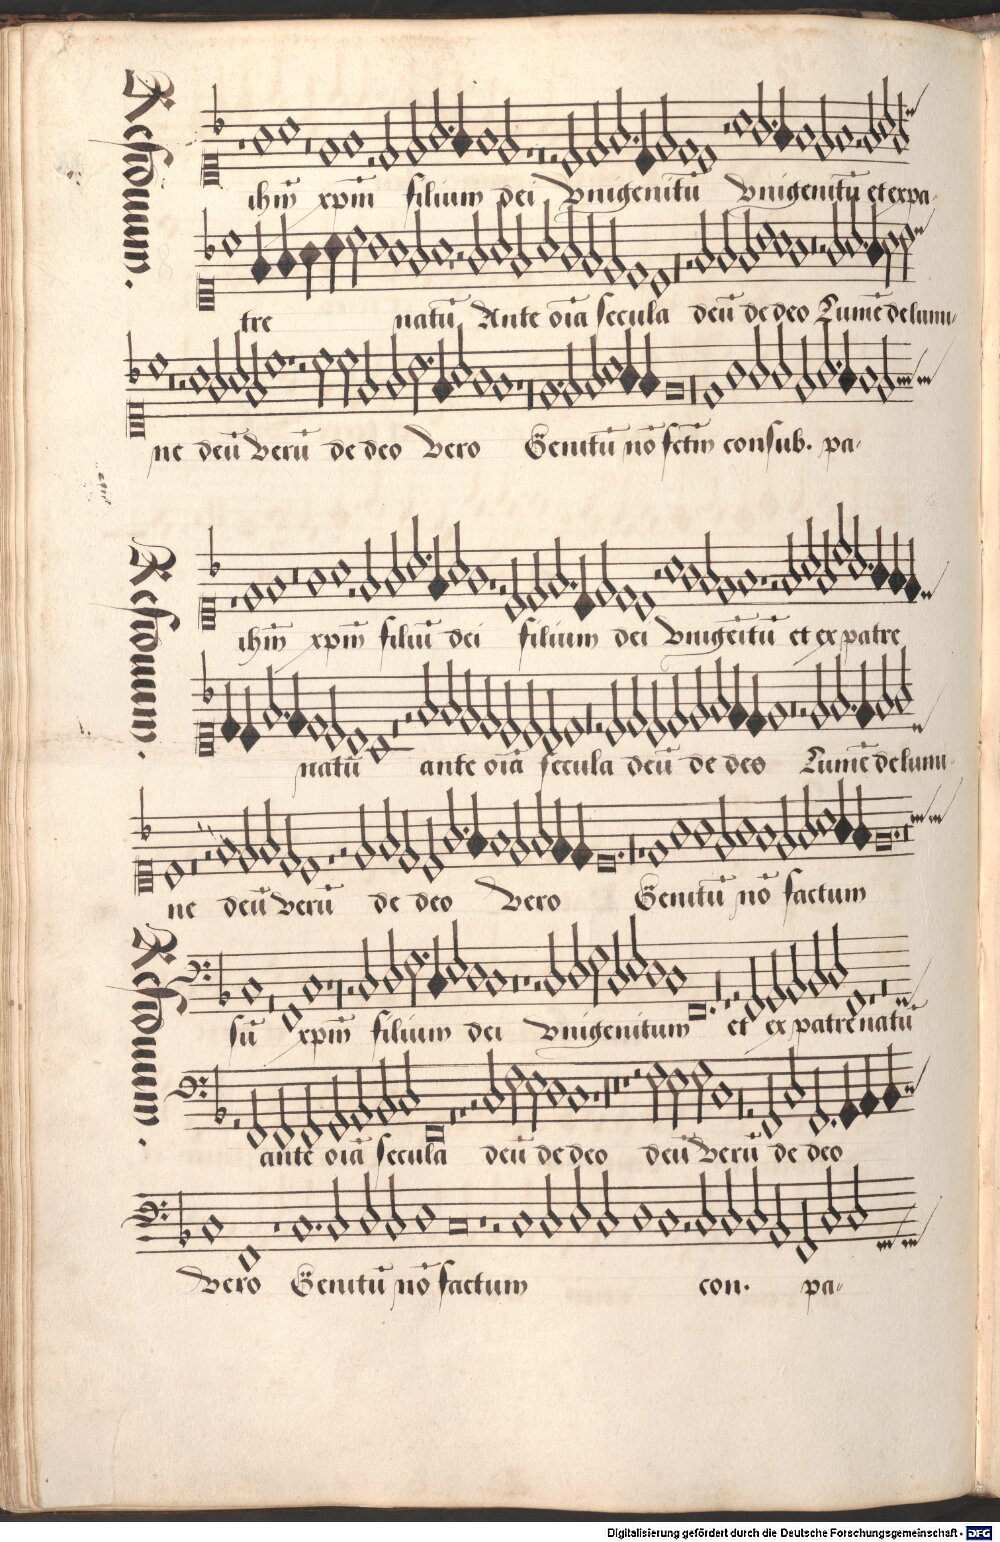 ihm̄ xpm̄ filium dei vnigenitū vnigenitū et ex pa-
tre natū Ante oīa secula deū de deo Lumē de lumi-
ne deū verū de deo vero Genitū nō fctm̄ con sub. pa-
ihm̄ xpm̄ filiū dei filium dei vnigeītū et ex patre
natū ante oīa secula deū de deo Lumē de lumi-
ne deū verū de deo vero Genitū nō factum
sū xpm̄ filium dei vnigenitum et ex patre natū
ante oīa secula deū de deo deū verū de deo
vero Genitū nō factum con. pa-
Digitalisierung gefördert durch die Deutsche Forschungsgemeinschaft - DFG